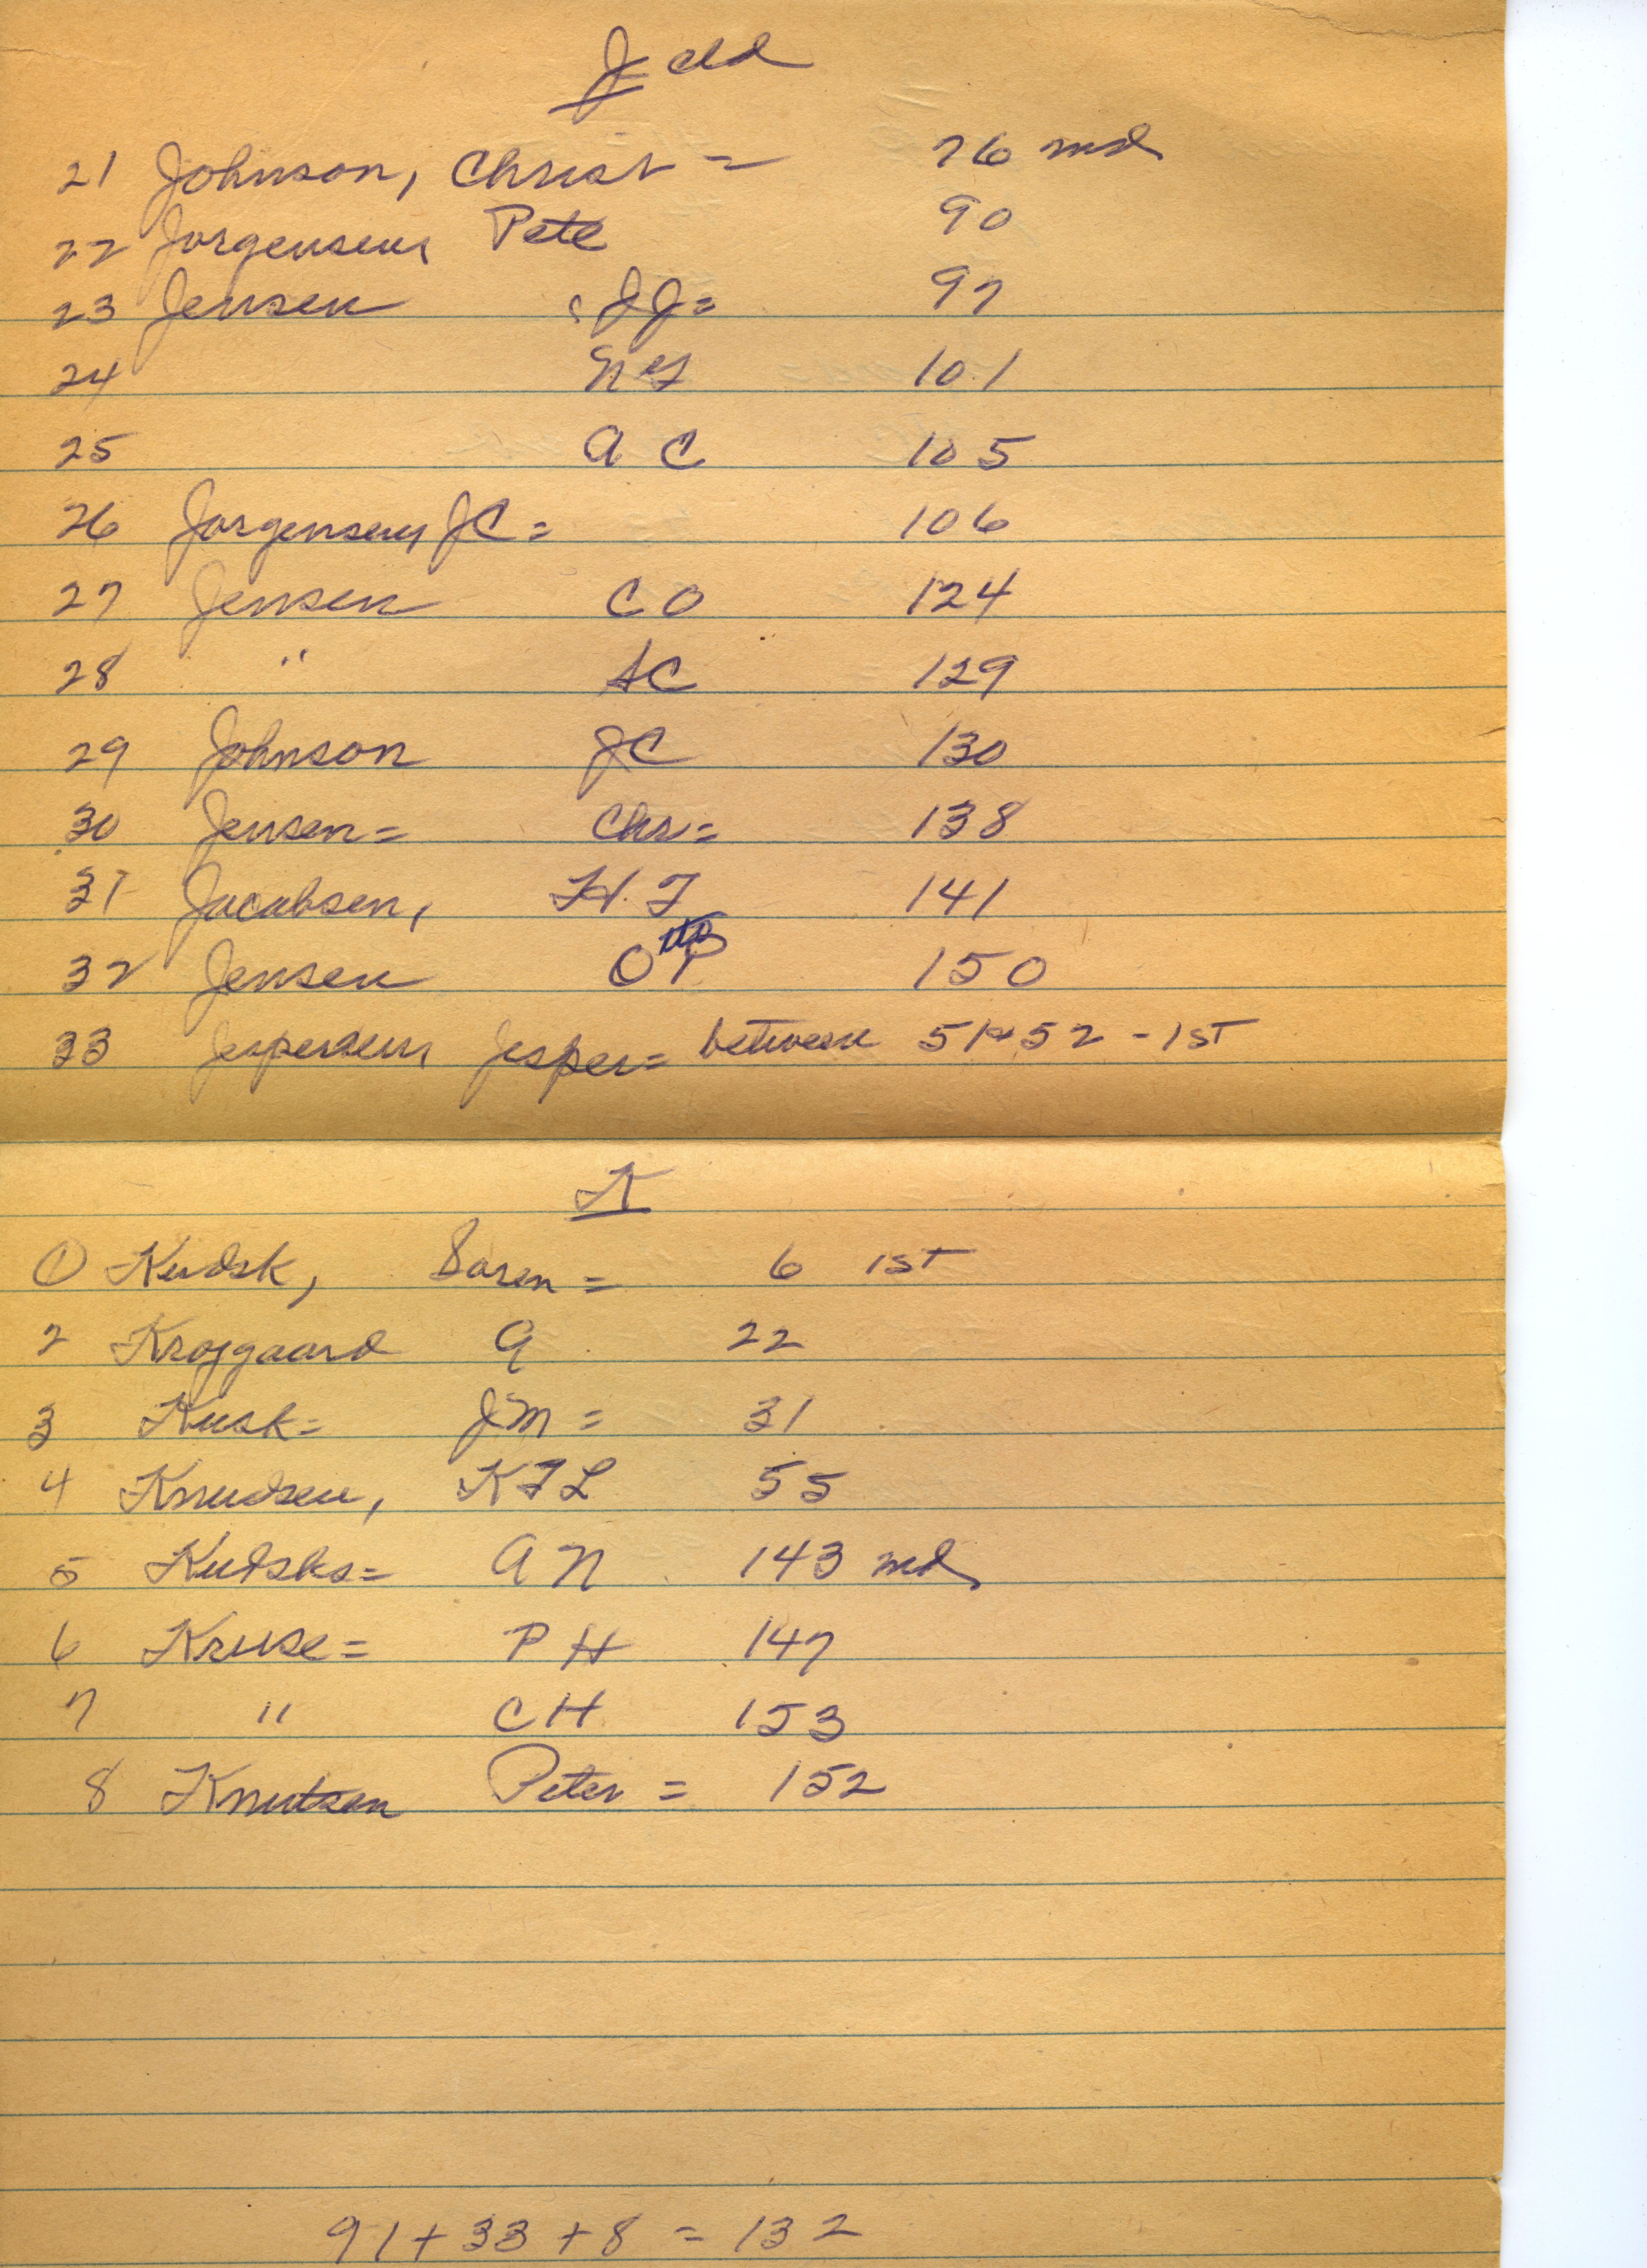 J cld
21 Johnson, Christ = 76 md
22 Jorgensen, Pete 90
23 Jensen JJ = 97
24 101
25 A C 105
26 Jorgensen, JC = 106
27 Jensen C O 124
28 " AC 129
29 Johnson JC 130
30 Jensen = Chr = 138
31 Jacobsen, H. J 141
32 Jensen Otto P 150
33 Jespersen, Jesper = between 51 & 52 - 1st
K
① Kudsk, Soren = 6 1st
2 Krojgaard G 22
3 Kusk = JM = 31
4 Knudsen, K J L 55
5 Kudsks = A N 143 md
6 Kruse = P H 147
7 " C H 153
8 Knutsen Peter = 152
91 + 33 + 8 = 132